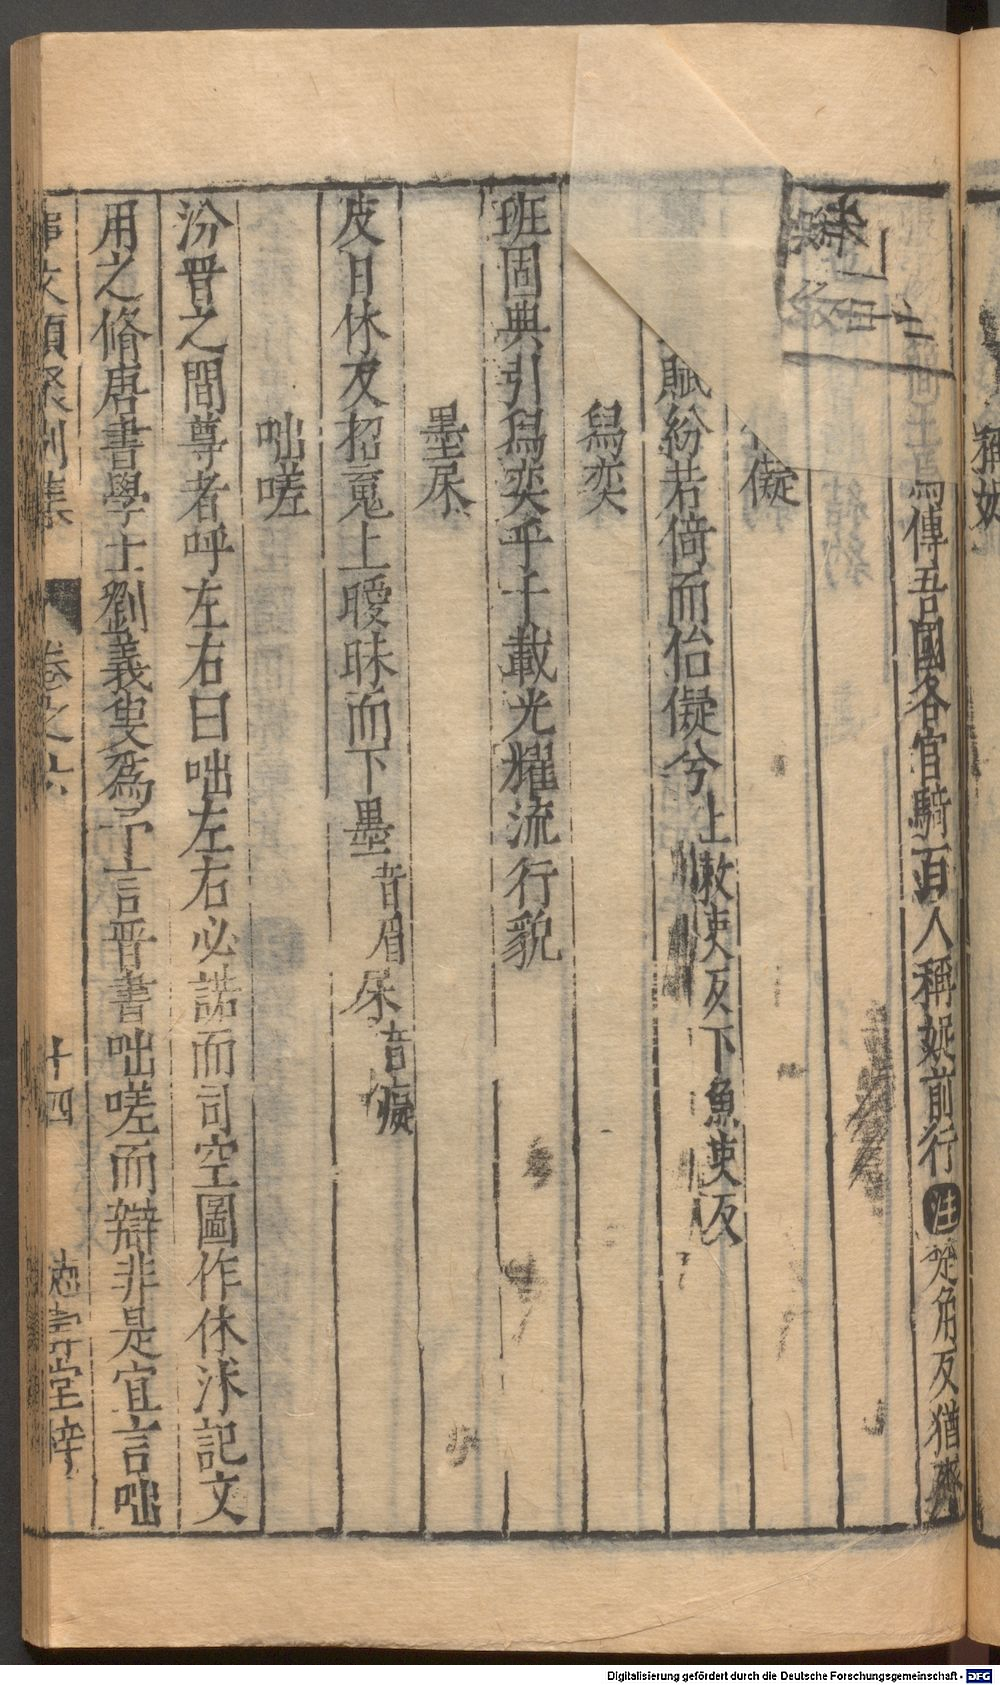 傳吾國各官騎百人稱娖前行注楚角反猶齊
儗
賦紛若倚而佁儗兮上敕吏反下魚吏反
舄奕
班固典引舄奕乎千載光耀流行貌
墨杘
皮日休友招䰟上曖昧而下墨音眉杘音癡
咄嗟
汾晋之間尊者呼左右曰咄左右必諾而司空圖作休沭記文
用之脩唐書學士劉義叟爲予言晋書咄嗟而辯非是宜言咄
事文類聚别集
卷之六
十四
德壽堂梓
稱娖
Digitalisierung gefördert durch die Deutsche Forschungsgemeinschaft - DFG